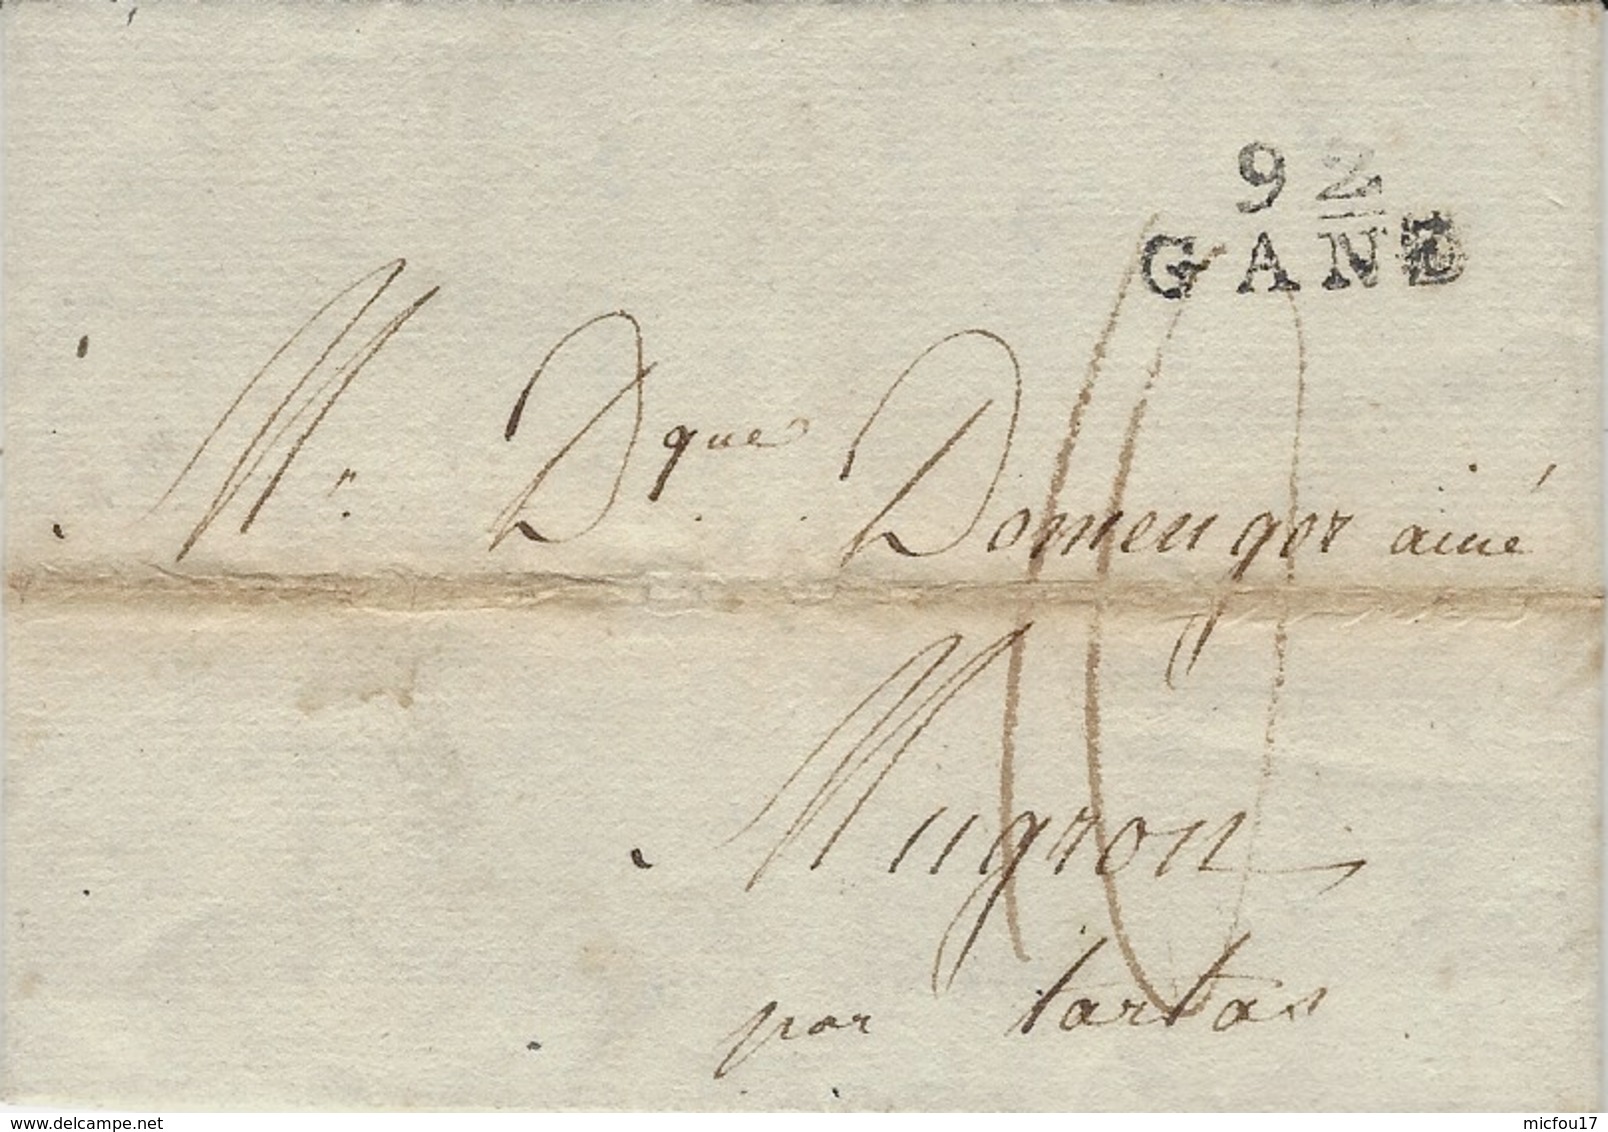 92
GAND
10
Mr. Dque Domenger ainé
Mugron
par tartas
delcampe.net
micfou17